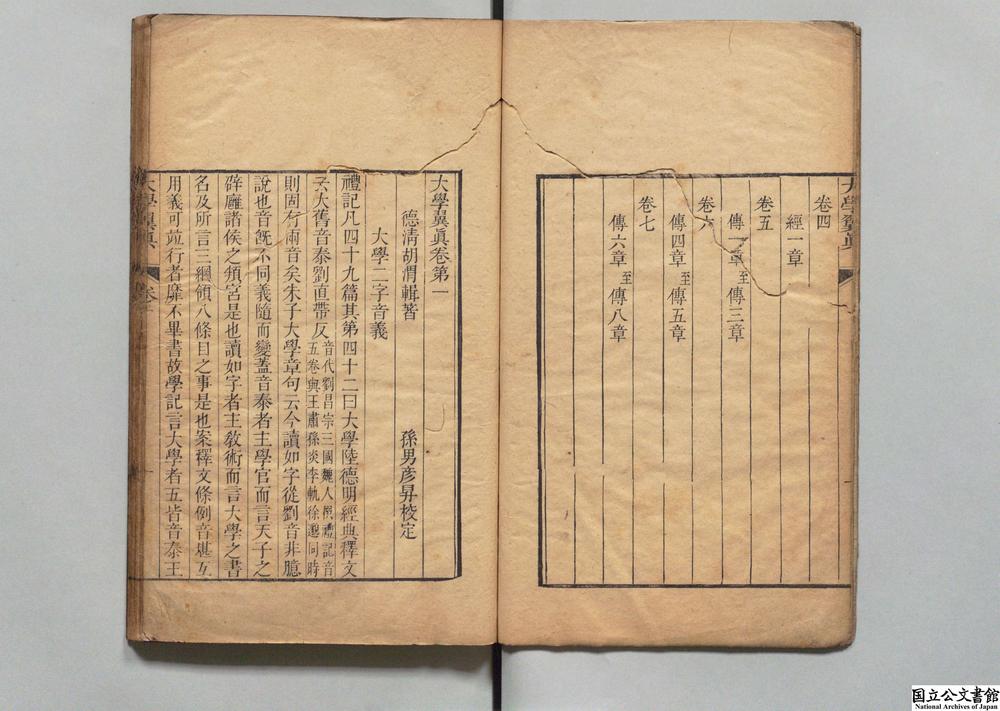 大學翼眞
卷四
經一章
卷五
傳一章至傳三章
卷六
傳四章至傳五章
卷七
傳六章至傳八章
大學翼眞卷第一
德清胡渭輯著 孫男彥昇校定
大學二字音義
禮記凡四十九篇其第四十二曰大學陸德明經典釋文
云大舊音泰劉直帶反音代劉昌宗三國魏人撰禮記音
五卷與王肅孫炎李軌徐邈同時
則固有兩音矣朱子大學章句云今讀如字從劉音非臆
說也音旣不同義隨而變蓋音泰者主學官而言天子之
辟廱諸侯之頖宮是也讀如字者主敎術而言大學之書
名及所言三綱領八條目之事是也案釋文條例音堪互
用義可並行者靡不畢書故學記言大學者五皆音泰王
大學翼眞
卷一
国立公文書館
National Archives of Japan